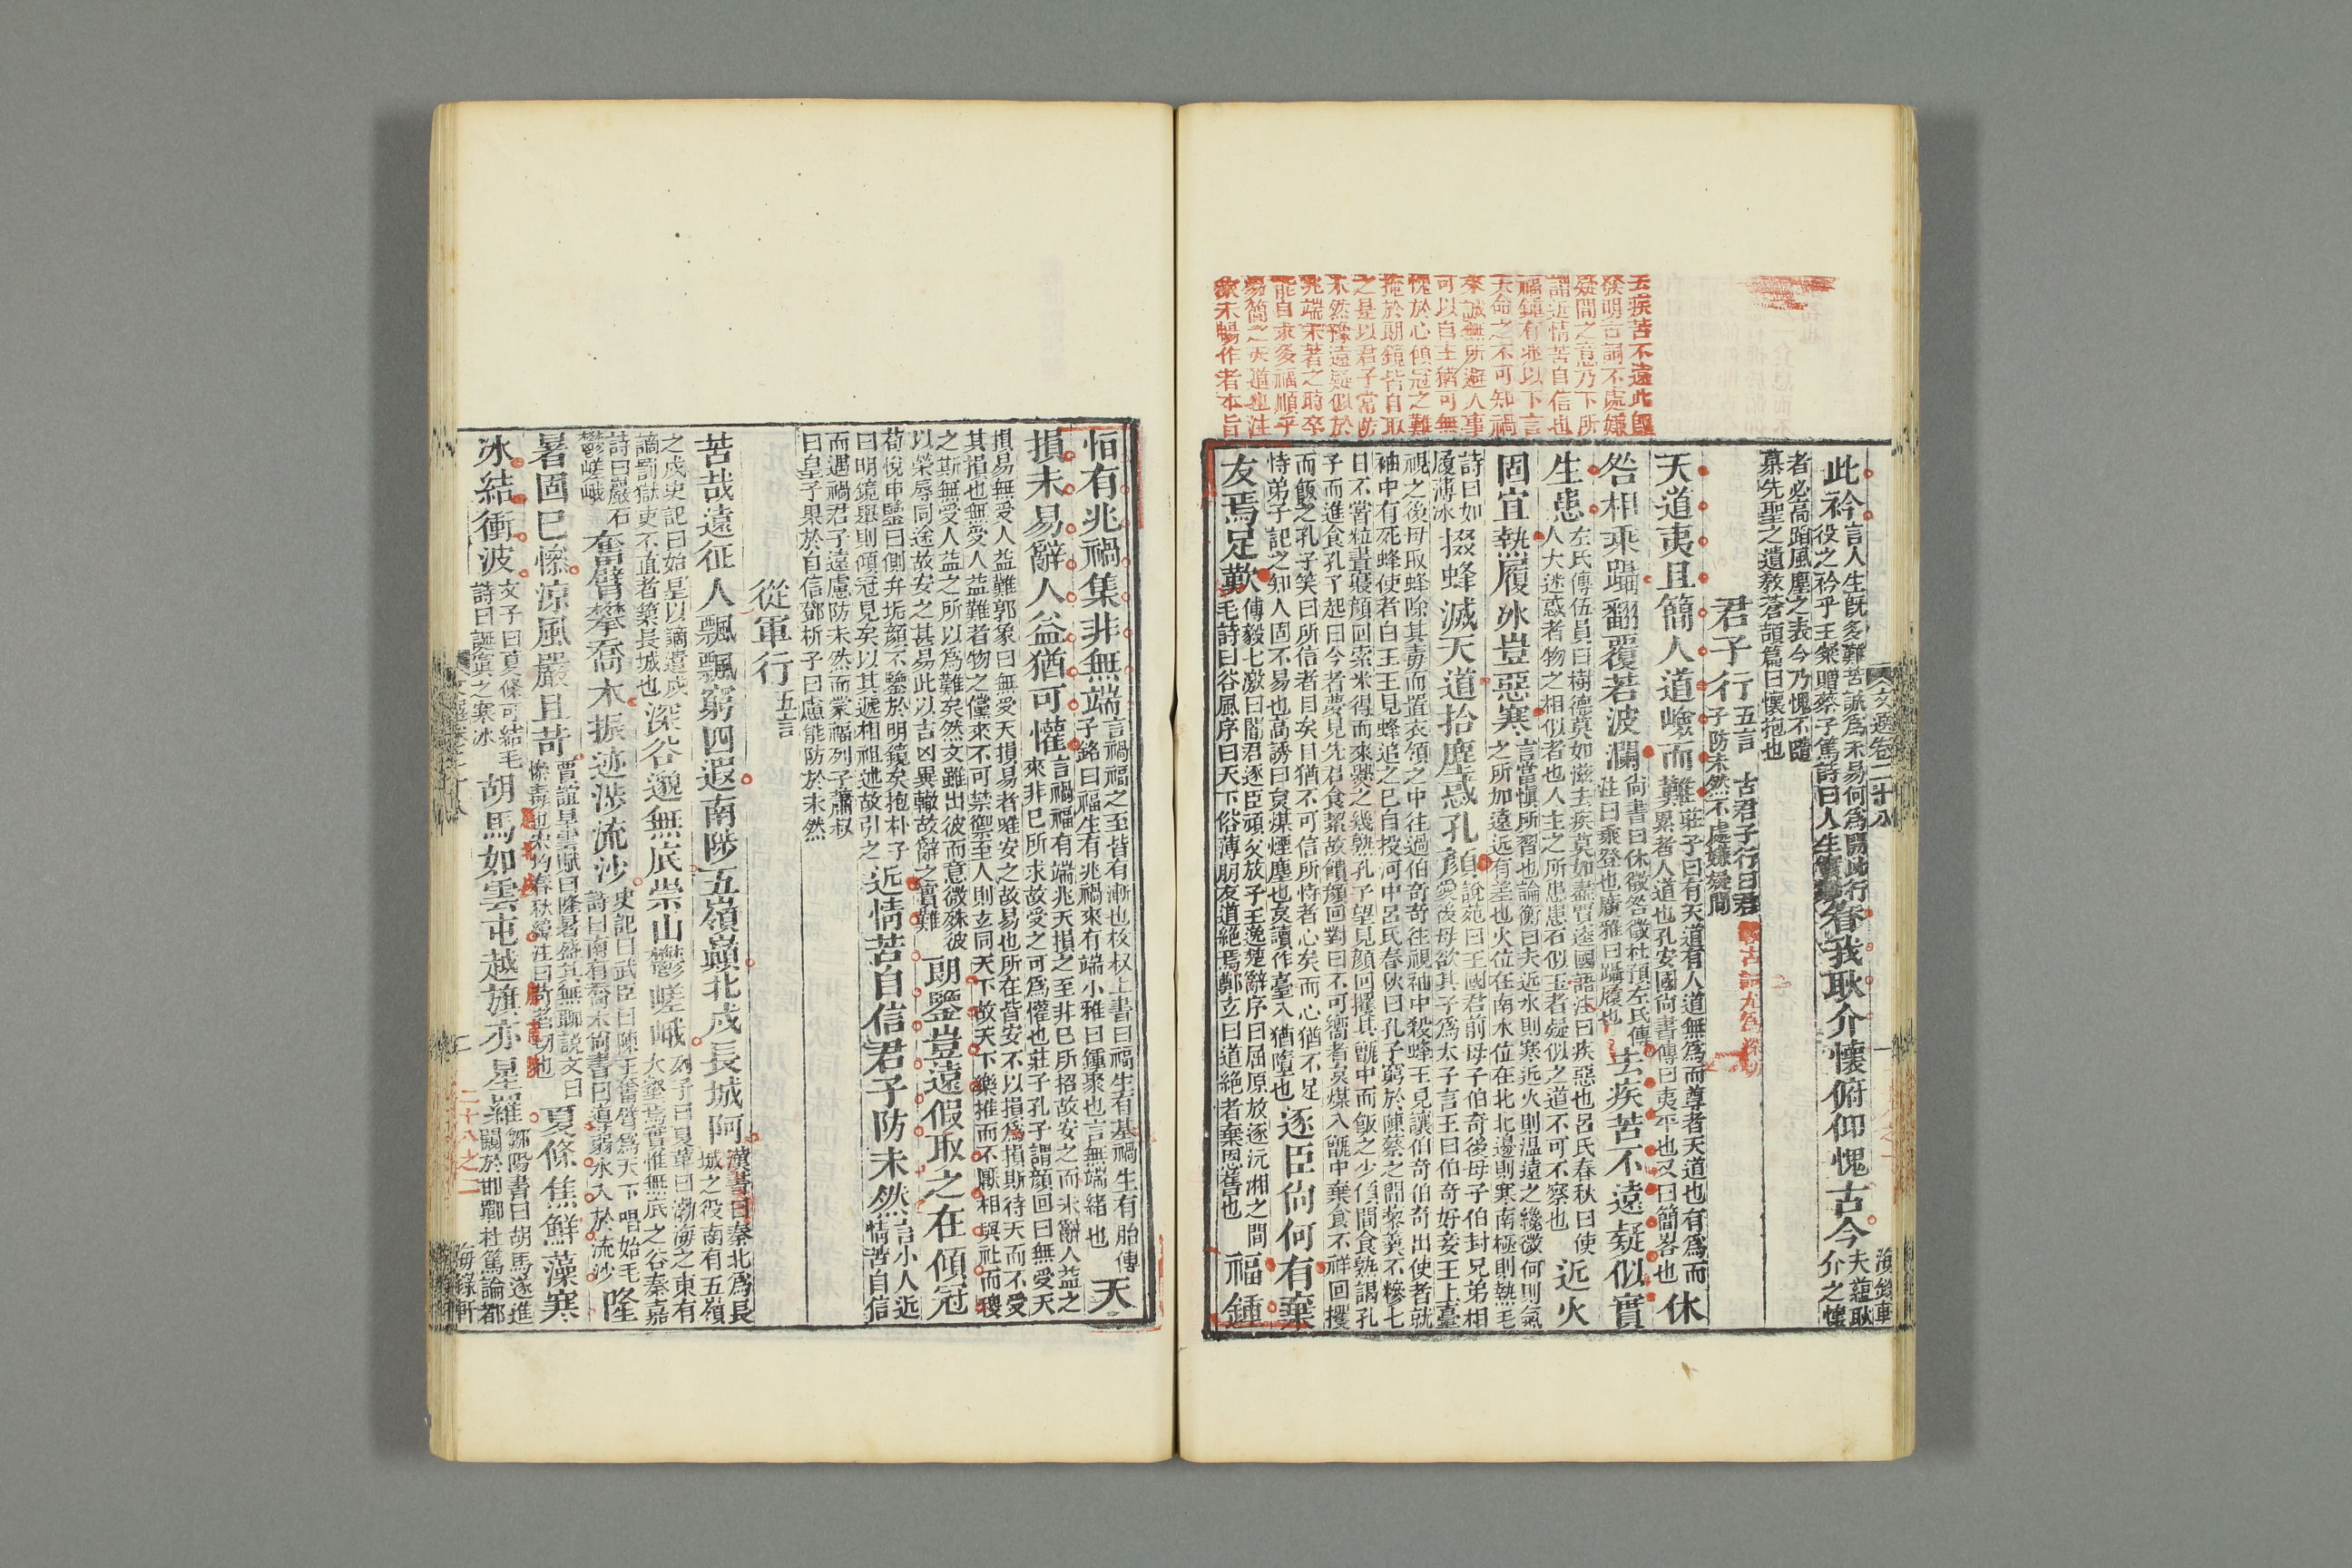 去疾苦不遠此
發明古詞不處嫌
疑間之意乃下所
謂近情苦自信也
福鍾有兆以下言
天命之不可知禍
來誠無所避人事
可以自主猶可無
愧於心傾冠之難
掩於朗鏡皆自取
之是以君子常防
未然豫遠疑似於
兆端未著之時卒
能自求多福順乎
易簡之天道也注
家未暢作者本旨
此衿言人生旣多難苦誠爲未易何爲
役之衿乎王粲贈蔡子篤詩曰人生實難
眷我耿介懷俯仰愧古今夫蘊耿
介之懷
者必高蹈風塵之表今乃愧不隨
慕先聖之遺教蒼頡篇曰懷抱也
君子行五言 古君子行曰君
子防未然不處嫌疑間
天道夷且簡人道嶮而難莊子曰有天道有人道無爲而尊者天道也有爲而
累者人道也孔安國尙書傳曰夷平也又曰簡畧也休
咎相乘躡翻覆若波瀾尙書曰休徵咎徵杜預左氏傳
注曰乘登也廣雅曰躡履也去疾苦不遠疑似實
生患左氏傳伍員曰樹德莫如滋去疾莫如盡賈逵國語注曰疾惡也呂氏春秋曰使
人大迷惑者物之相似者也人主之所患患石似玉者疑似之道不可不察也近火
固宜執履冰豈惡寒言當愼所習也論衡曰夫近水則寒近火則溫遠之纔微何則氣
之所加遠近有差也火位在南水位在北北邊則寒南極則熱毛
詩曰如
履薄冰掇蜂滅天道拾塵惑孔顏說苑曰王國君前母子伯奇後母子伯封兄弟相
愛後母欲其子爲太子言王曰伯奇好妾王上臺
視之後母取蜂除其毒而置衣領之中往過伯奇奇往視袖中殺蜂王見讓伯奇伯奇出使者就
袖中有死蜂使者白王王見蜂追之已自投河中呂氏春秋曰孔子窮於陳蔡之間藜羹不糝七
日不嘗粒晝寢顏回索米得而來爨之幾熟孔子望見顏回攫其甑中而飯之少頃間食熟謁孔
子而進食孔子起曰今者夢見先君食絜故饋顏回對曰不可嚮者炱煤入甑中棄食不祥回攫
而飯之孔子笑曰所信者目矣目猶不可信所恃者心矣而心猶不足
恃弟子記之知人固不易也高誘曰炱煤煙塵也炱讀作臺入猶墮也逐臣尙何有棄
友焉足歎傅毅七激曰闇君逐臣頑父放子王逸楚辭序曰屈原放逐沅湘之間
毛詩曰谷風序曰天下俗薄朋友道絕焉鄭玄曰道絕者棄恩舊也福鍾
恒有兆禍集非無端言禍福之至皆有漸也枚叔上書曰福生有基禍生有胎傅
子銘曰福生有兆禍來有端小雅曰鍾聚也言無端緒也天
損未易辭人益猶可懽言禍福有端兆天損之至非己所招故安之而未辭人益之
來非己所求故受之可爲懽也莊子孔子謂顏回曰無受天
損易無受人益難郭象曰無受天損易者唯安之故易也所在皆安不以損爲損斯待天而不受
其損也無受人益難者物之儻來不可禁禦至人則玄同天下故天下樂推而不厭相與社而稷
之斯無受人益之所以爲難矣然文雖出彼而意微殊彼
以榮辱同途故安之甚易此以吉凶異轍故辭之實難朗鑒豈遠假取之在傾冠
荀悅申鑒曰側弁垢顏不鑒於明鏡矣抱朴子
曰明鏡舉則傾冠見矣以其遞相祖述故引之近情苦自信君子防未然言小人近
情苦自信
而遇禍君子遠慮防未然而蒙福列子蕭叔
曰皇子果於自信鄧析子曰慮能防於未然
從軍行五言
苦哉遠征人飄飄窮四遐南陟五嶺巔北戍長城阿漢書曰秦北爲長
城之役南有五嶺
之戍史記曰始皇以謫遣戍
謫罰獄吏不直者築長城也深谷邈無底崇山鬱嵯峨列子曰夏革曰渤海之東有
大壑焉實惟無底之谷秦嘉
詩曰巖石
鬱嵯峨奮臂攀喬木振迹涉流沙史記曰武臣曰陳王奮臂爲天下唱始毛
詩曰南有喬木尙書曰導弱水入於流沙隆
暑固已慘涼風嚴且苛賈誼旱雲賦曰隆暑盛其無聊說文曰
慘毒也宋均春秋緯注曰苛苛切也夏條焦鮮藻寒
冰結衝波文子曰夏條可結毛
詩曰誕寘之寒冰胡馬如雲屯越旗亦星羅鄒陽書曰胡馬遂進
闚於邯鄲杜篤論都
文選卷二十八
二
二十八之二
海錄軒